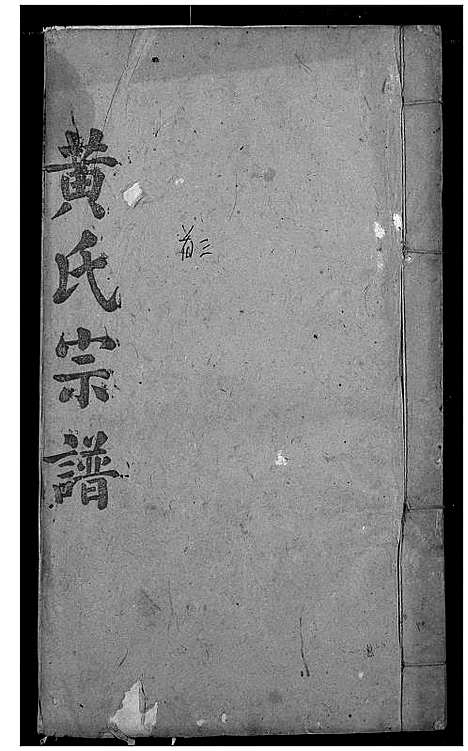 黃氏宗譜
首三